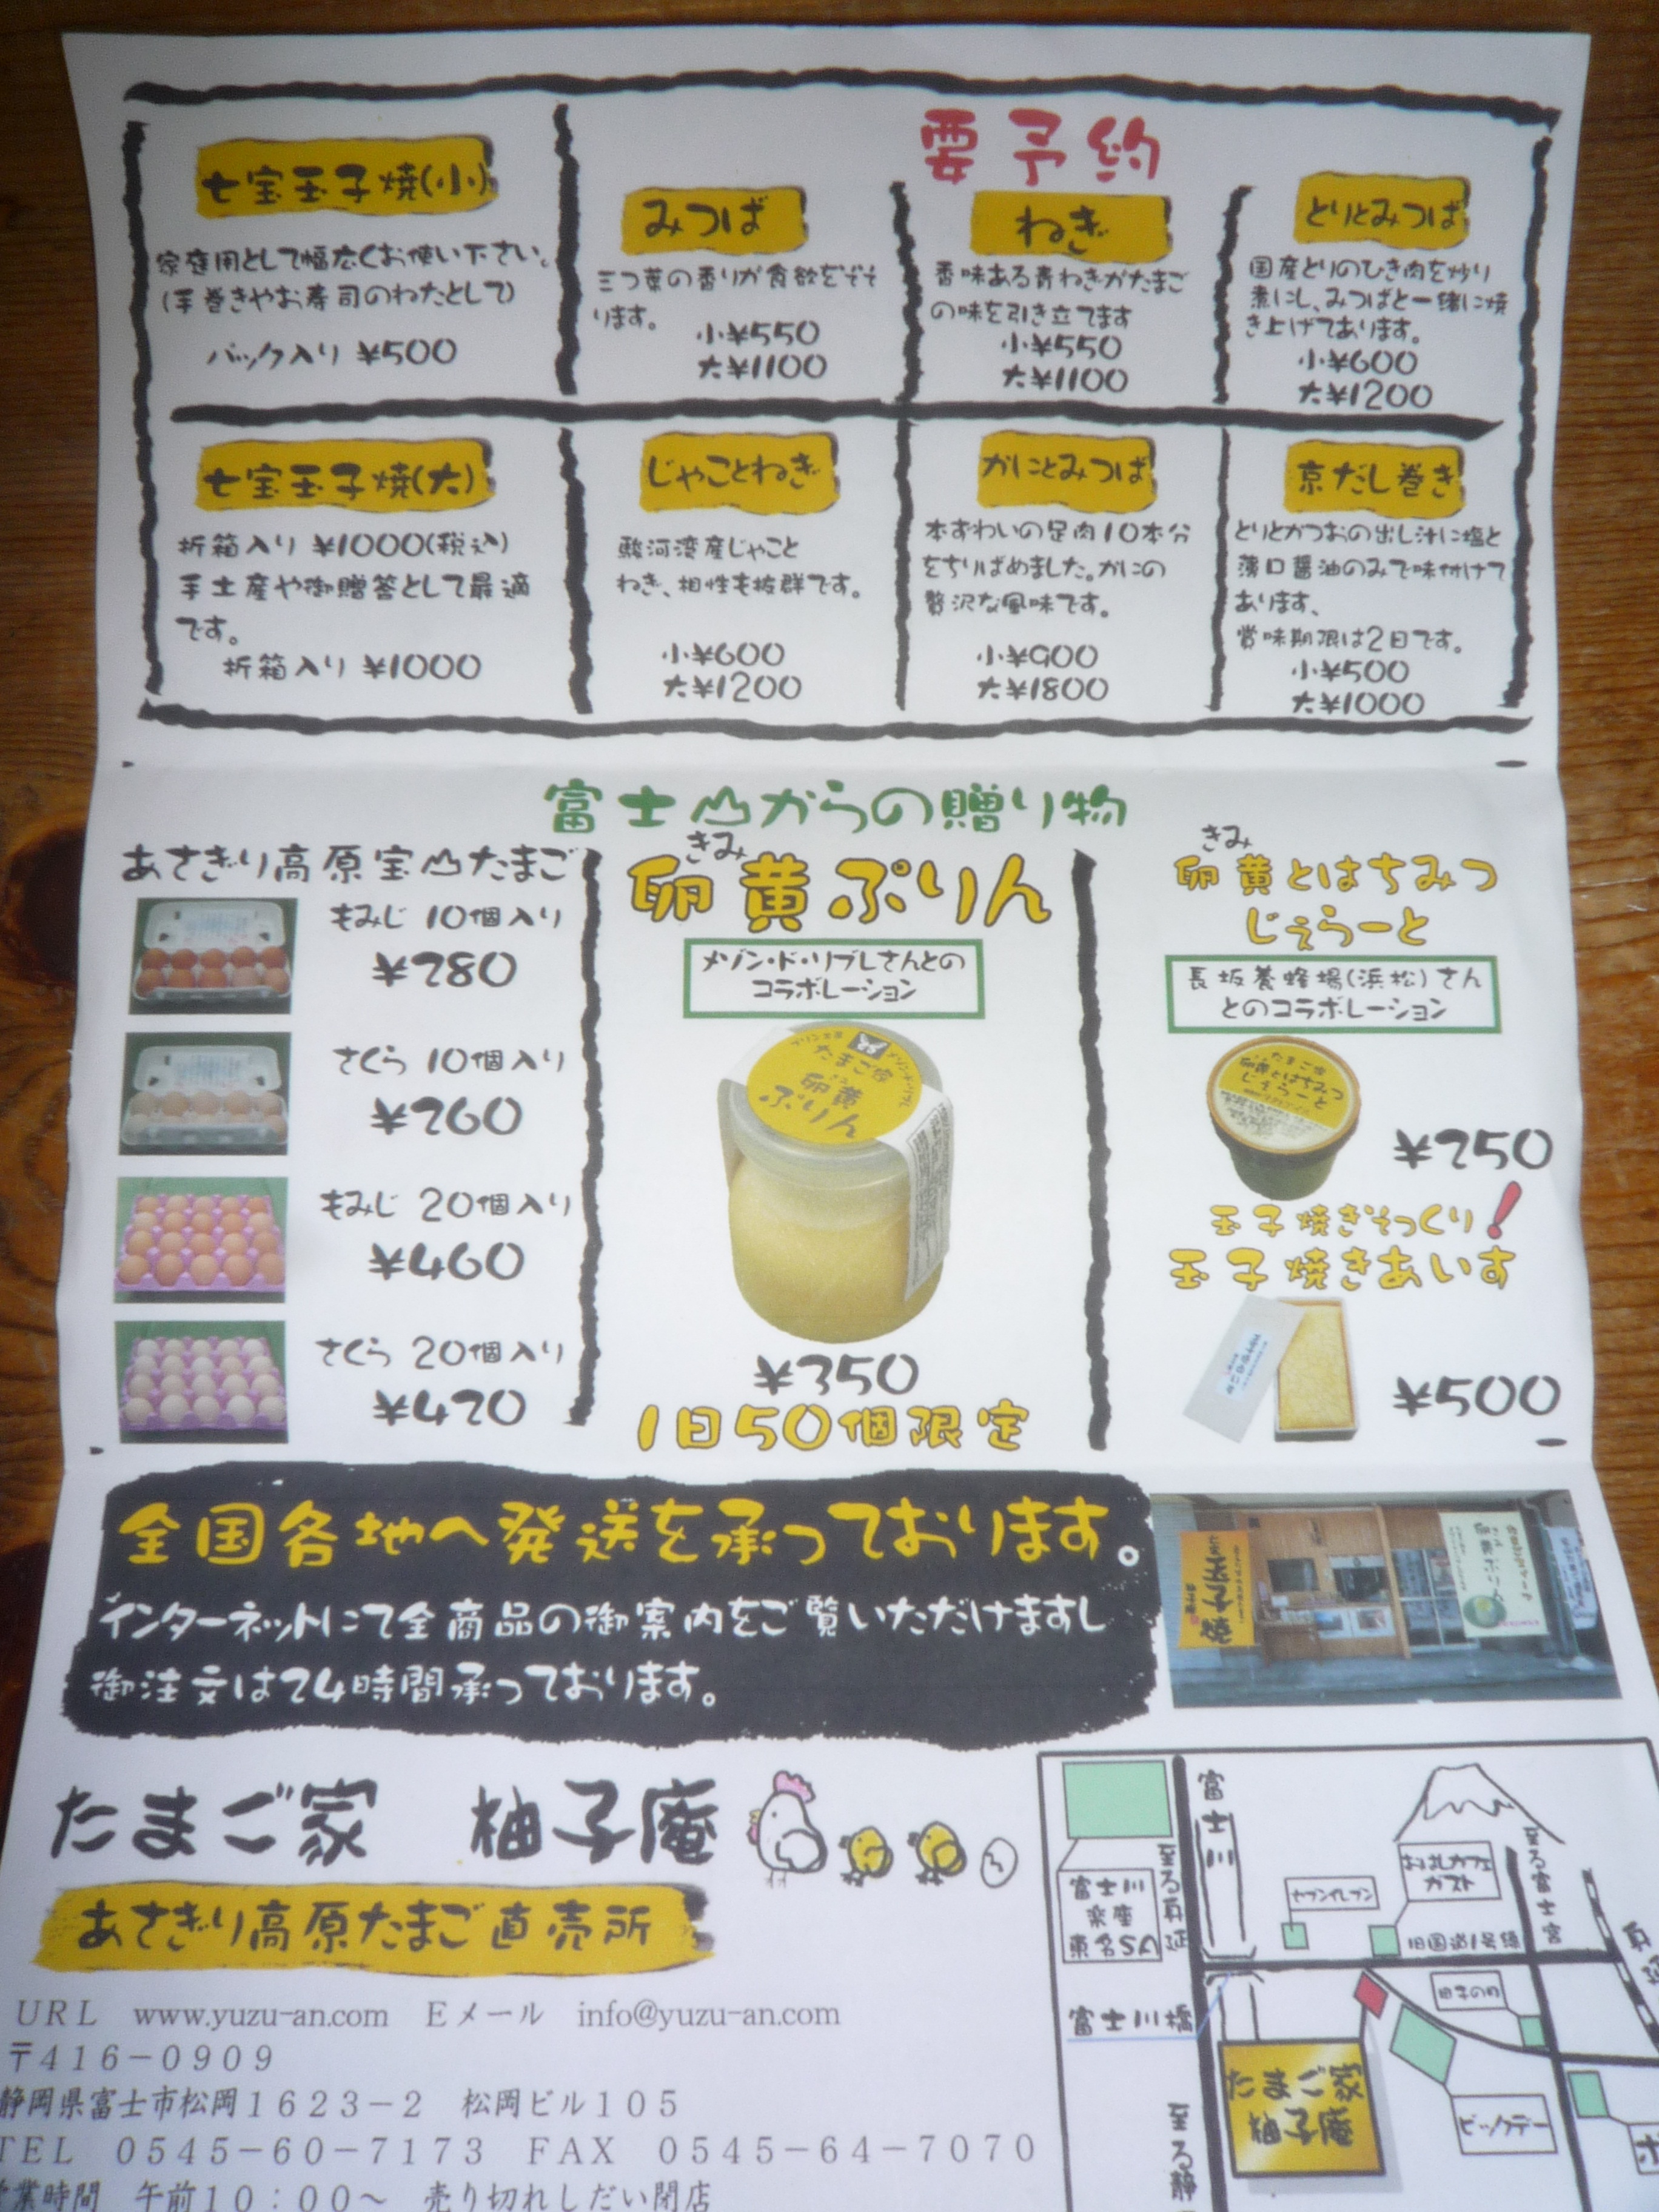 要予約
七宝玉子焼(小)
家庭用として幅広くお使い下さい。
(手巻きやお寿司のねたとして)
パック入り ¥500
みつば
三つ葉の香りが食欲をそそ
ります。
小¥550
大¥1100
ねぎ
香味ある青ねぎがたまご
の味を引き立てます
小¥550
大¥1100
とりとみつば
国産とりのひき肉を炒り
煮にし、みつばと一緒に焼
き上げてあります。
小¥600
大¥1200
七宝玉子焼(大)
折箱入り ¥1000(税込)
手土産や御贈答として最適
です。
折箱入り ¥1000
じゃことねぎ
駿河湾産じゃこと
ねぎ、相性も抜群です。
小¥600
大¥1200
かにとみつば
本ずわいの足肉10本分
をちりばめました。かにの
贅沢な風味です。
小¥900
大¥1800
京だし巻き
とりとかつおの出し汁に塩と
薄口醤油のみで味付けて
あります、
賞味期限は2日です。
小¥500
大¥1000
富士山からの贈り物
あさぎり高原宝山たまご
もみじ 10個入り
¥280
さくら 10個入り
¥260
もみじ 20個入り
¥460
さくら 20個入り
¥420
きみ
卵黄ぷりん
メゾン・ド・リブレさんとの
コラボレーション
たまご家
卵黄
ぷりん
¥350
1日50個限定
きみ
卵黄とはちみつ
じぇらーと
長坂養蜂場(浜松)さん
とのコラボレーション
たまご家
卵黄とはちみつ
じぇらーと
¥250
玉子焼きそっくり!
玉子焼きあいす
¥500
全国各地へ発送を承っております。
インターネットにて全商品の御案内をご覧いただけますし
御注文は24時間承っております。
たまご家 柚子庵
あさぎり高原たまご直売所
URL www.yuzu-an.com Eメール info@yuzu-an.com
〒416-0909
静岡県富士市松岡1623-2 松岡ビル105
TEL 0545-60-7173 FAX 0545-64-7070
営業時間 午前10:00～ 売り切れしだい閉店
富士川
至る身延
富士川
楽座
東名SA
富士川橋
セブンイレブン
ガスト
旧国道1号線
至る富士宮
たまご家
柚子庵
ビックデー
至る静